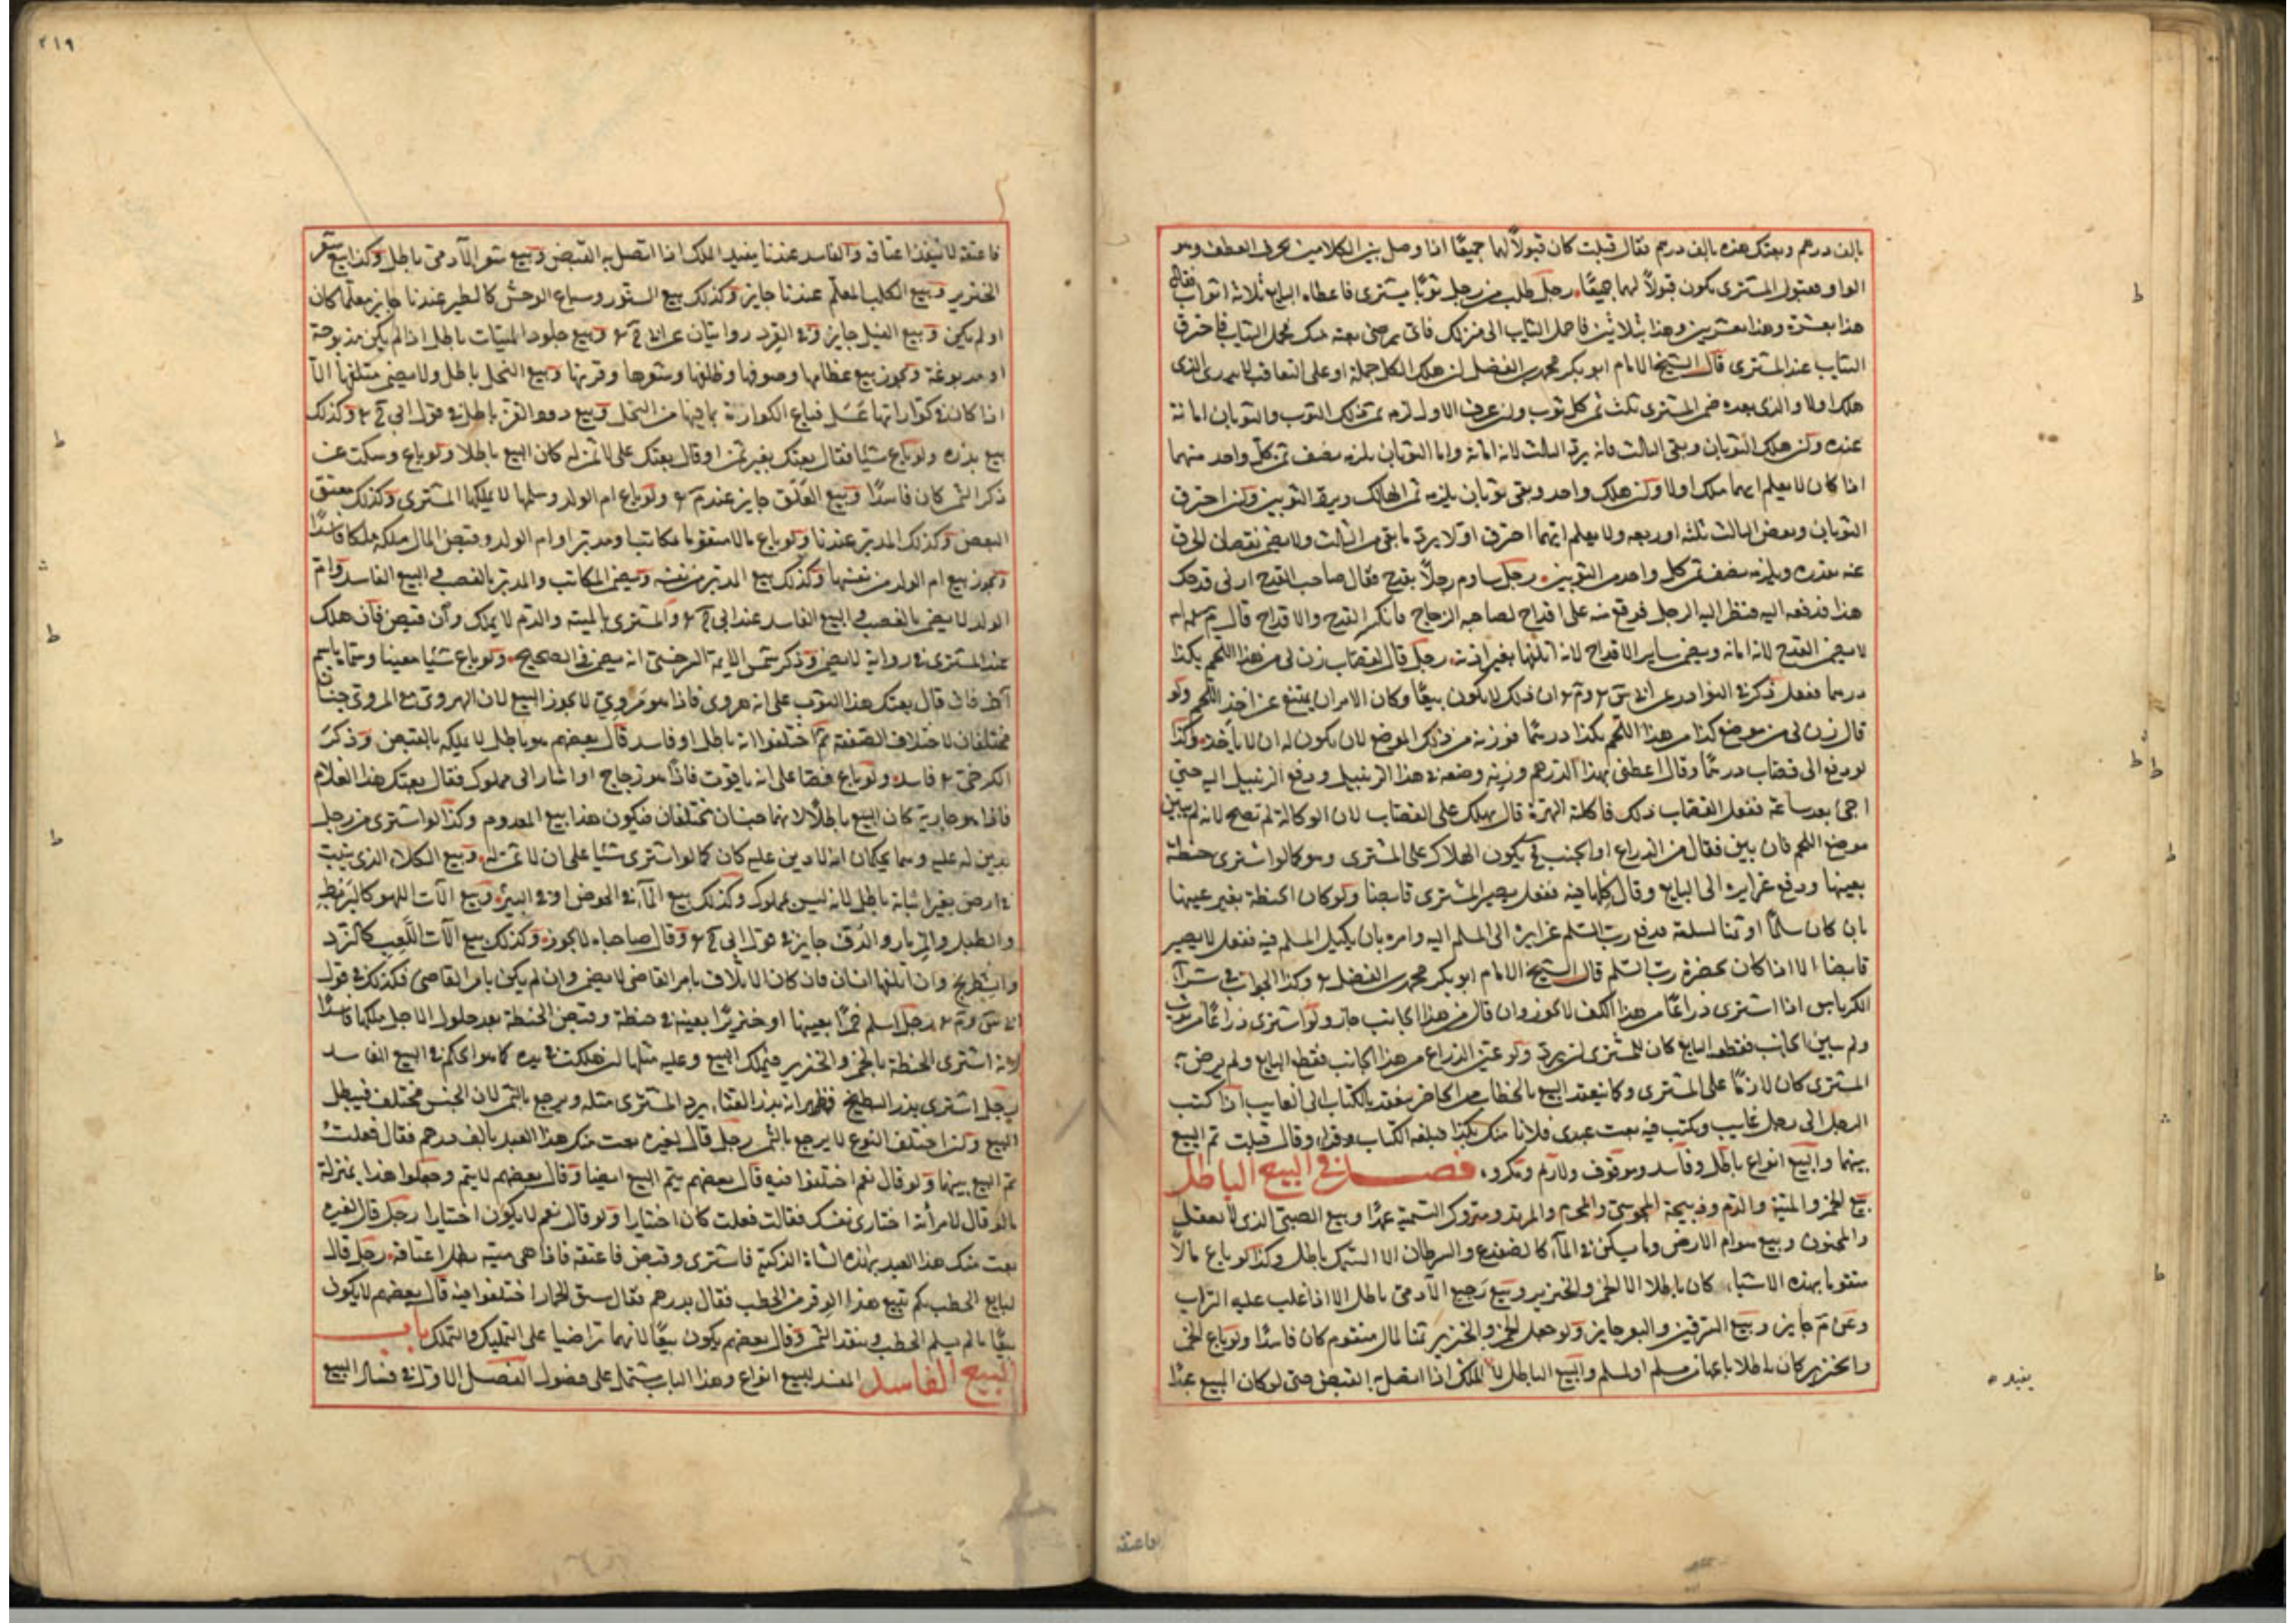 بالف درهم وبعتك هذه بالف درهم فقال قبلت كان قبولاً لهما جميعًا اذا وصل بين الكلامين بحرف العطف وهو
الواو فقبول المشترى يكون قبولاً لهما جميعًا رجل طلب من رجل ثوبًا ليشترى فاعطاه البايع ثلاثة اثواب فقال
هذا بعشرة وهذا بعشرين وهذا بثلاثين فاحمل الثياب الى منزلك فاى ثوب ترضى بعته منك فحمل الثياب فاحترق
الثياب عند المشترى قال الشيخ الامام ابو بكر محمد بن الفضل ان هلك الكل جملة او على التعاقب لا يدرى الذى
هلك اولا والذى بعده ضمن المشترى ثلث ثمن كل ثوب وان عرف الاول لزمه ثمن ذلك الثوب والثوبان امانة
عنده وان هلك الثوبان وبقى الثالث فانه يرد الثالث لانه امانة واما الثوبان يلزمه نصف ثمن كل واحد منهما
اذا كان لا يعلم ايهما هلك اولا وان هلك واحد وبقى ثوبان يلزمه ثمن الهالك ويرد الثوبين وان احترق
الثوبان وبعض الثالث ثلثه او ربعه ولا يعلم ايهما احترق اولا يرد ما بقى من الثالث ولا يضمن نقصان الحرق
عنه بقدره ويلزمه نصف ثمن كل واحد من الثوبين رجل ساوم رجلاً بقدح فقال صاحب القدح ارنى قدحك
هذا فدفعه اليه فنظر اليه الرجل فوقع منه على اقداح لصاحب الزجاج فانكسر القدح والاقداح قال
لا يضمن القدح لانه امانة ويضمن ساير الاقداح لانه اتلفها بغير اذنه رجل قال لقصاب زن لى من هذا اللحم بكذا
درهما ففعل ذكر فى النوادر ان ذلك لا يكون بيعًا وكان الامر ان يمتنع عن اخذ اللحم ولو
قال زن لى من موضع كذا من هذا اللحم بكذا درهمًا فوزنه من ذلك الموضع لا يكون له ان لا ياخذ وكذا
لو دفع الى قصاب درهمًا وقال اعطنى بهذا الدرهم وزنه وضعه فى هذا الزنبيل ودفع الزنبيل اليه حتى
اجئ بعد ساعة ففعل القصاب ذلك فاكلته الهرة قال يهلك على القصاب لان الوكالة لم تصح لانه لم يبين
موضع اللحم فان بين فقال من الذراع او الجنب يكون الهلاك على المشترى وهو كما لو اشترى حنطة
بعينها ودفع غرايره الى البايع وقال كلها فيه ففعل يصير المشترى قابضا ولو كان الحنطة بغير عينها
بان كان سلمًا او ثمنا لسلعة فدفع رب السلم غرايره الى المسلم اليه وامره بان يكيل المسلم فيه ففعل لا يصير
قابضا الا اذا كان بحضرة رب السلم قال الشيخ الامام ابو بكر محمد بن الفضل وكذا الجواب فى شراء
الكرباس اذا اشترى ذراعًا من هذا الكف لا يجوز وان قال من هذا الجانب جاز ولو اشترى ذراعًا من ثوب
ولم يبين الجانب فقطع البايع كان للمشترى ان يرده ولو عين الذراع من هذا الجانب فقطع البايع ولم يرض به
المشترى كان لازمًا على المشترى وكما ينعقد البيع بالخطاب من الحاضر ينعقد بالكتاب الى الغايب اذا كتب
الرجل الى رجل غايب وكتب فيه بعت عبدى فلانا منك بكذا فبلغه الكتاب وقرأ وقال قبلت تم البيع
بينهما والبيع انواع باطل وفاسد وموقوف ولازم ومكروه فصل فى البيع الباطل
بيع الخمر والميتة والدم وذبيحة المجوسى والمحرم والمرتد ومتروك التسمية عمدًا وبيع الصبى الذى لا يعقل
والمجنون وبيع هوام الارض وما يسكن فى الماء كالضفدع والسرطان الا السمك باطل وكذا لو باع مالاً
متقوما بهذه الاشياء كان باطلا الا الخمر والخنزير وبيع رجيع الآدمى باطل الا اذا غلب عليه التراب
وعن م جايز وبيع السرقين والبعر جايز ولو جعل الخمر والخنزير ثمنا لمال متقوم كان فاسدًا ولو باع الخمر
والخنزير كان باطلا باعها من مسلم او لمسلم والبيع الباطل لا الملك اذا اتصل به القبض حتى لو كان المبيع عبدًا
يفيده
فاعتقه
٢١٩
فاعتقه لا ينفذ اعتاقه والفاسد عندنا يفيد الملك اذا اتصل به القبض وبيع شعر الآدمى باطل وكذا بيع شعر
الخنزير وبيع الكلب المعلم عندنا جايز وكذلك بيع السنور وسباع الوحش كالطير عندنا جايز معلما كان
او لم يكن وبيع الفيل جايز وفى القرد روايتان عن ابى ح وبيع جلود الميتات باطل اذا لم يكن مذبوحة
او مدبوغة ويجوز بيع عظامها وصوفها وظلفها وشعرها وقرنها وبيع النحل باطل ولا يضمن متلفها الا
اذا كان فى كواراتها عسل فباع الكوارة بما فيها من النحل وبيع دود القز باطل فى قول ابى ح وكذلك
بيع بذره ولو باع شيئا فقال بعتك بغير ثمن او قال بعتك على لا ثمن له كان البيع باطلا ولو باع وسكت عن
ذكر الثمن كان فاسدًا وبيع العلق جايز عند م ولو باع ام الولد وسلمها لا يملكها المشترى وكذلك معتق
البعض وكذلك المدبر عندنا ولو باع مالا متقوما بمكاتب او مدبر او ام الولد وقبض المال ملكه ملكا فاسدًا
ويجوز بيع ام الولد من نفسها وكذلك بيع المدبر من نفسه ويضمن المكاتب والمدبر بالقبض فى البيع الفاسد وام
الولد لا يضمن بالقبض فى البيع الفاسد عند ابى ح والمشترى بالميتة والدم لا يملك وان قبض فان هلك
عند المشترى فى رواية لا يضمن وذكر شمس الايمة السرخسى انه يضمن فى الصحيح ولو باع شيئا معينا وسماه باسم
آخر فان قال بعتك هذا الثوب على انه هروى فاذا هو مروى لا يجوز البيع لان الهروى مع المروى جنسان
مختلفان لاختلاف الصنعة ثم اختلفوا انه باطل او فاسد قال بعضهم هو باطل لا يملكه بالقبض وذكر
الكرخى فاسد ولو باع فصا على انه ياقوت فاذا هو زجاج او اشار الى مملوك فقال بعتك هذا الغلام
فاذا هو جارية كان البيع باطلاً لانهما جنسان مختلفان فيكون هذا بيع المعدوم وكذا لو اشترى من رجل
بدين له عليه وهما يعلمان ان لا دين عليه كان كما لو اشترى شيئا على ان لا ثمن له وبيع الكلاء الذى ينبت
فى ارض بغير انباته باطل لانه ليس بمملوك وكذلك بيع الماء فى الحوض او فى البير وبيع آلات اللهو كالبربط
والطبل والمزمار والدف جايز فى قول ابى ح وقال صاحباه لا يجوز وكذلك بيع آلات اللعب كالنرد
والشطرنج وان اتلفها انسان فان كان الاتلاف بامر القاضى لا يضمن وان لم يكن بامر القاضى فكذلك فى قول
رجل اسلم خمرًا بعينها او خنزيرًا بعينه فى حنطة وقبض الحنطة بعد حلول الاجل ملكها فاسدًا
لانه اشترى الحنطة بالخمر والخنزير فيملك المبيع وعليه مثلها ان هلكت فى يده كما هو الحكم فى البيع الفاسد
رجل اشترى بذر البطيخ فظهر انه بذر القثاء يرد المشترى مثله ويرجع بالثمن لان الجنس مختلف فيبطل
البيع وان اختلف النوع لا يرجع بالثمن رجل قال لغيره بعت منك هذا العبد بالف درهم فقال فعلت
تم البيع بينهما ولو قال نعم اختلفوا فيه قال بعضهم يتم البيع ايضا وقال بعضهم لا يتم وجعلوا هذا بمنزلة
ما لو قال لامرأته اختارى نفسك فقالت فعلت كان اختيارا ولو قال نعم لا يكون اختيارا رجل قال لغيره
بعت منك هذا العبد بهذه الشاة الذكية فاشترى وقبض فاعتقه فاذا هى ميتة بطل اعتاقه رجل قال
لبايع الحطب بكم تبيع هذا الوقر من الحطب فقال بدرهم فقال سق الحمار اختلفوا فيه قال بعضهم لا يكون
بيعًا ما لم يسلم الحطب وينقد الثمن وقال بعضهم يكون بيعًا لانهما تراضيا على التمليك والتملك باب
البيع الفاسد المفسد للبيع انواع وهذا الباب يشتمل على فصول الفصل الاول فى فساد البيع